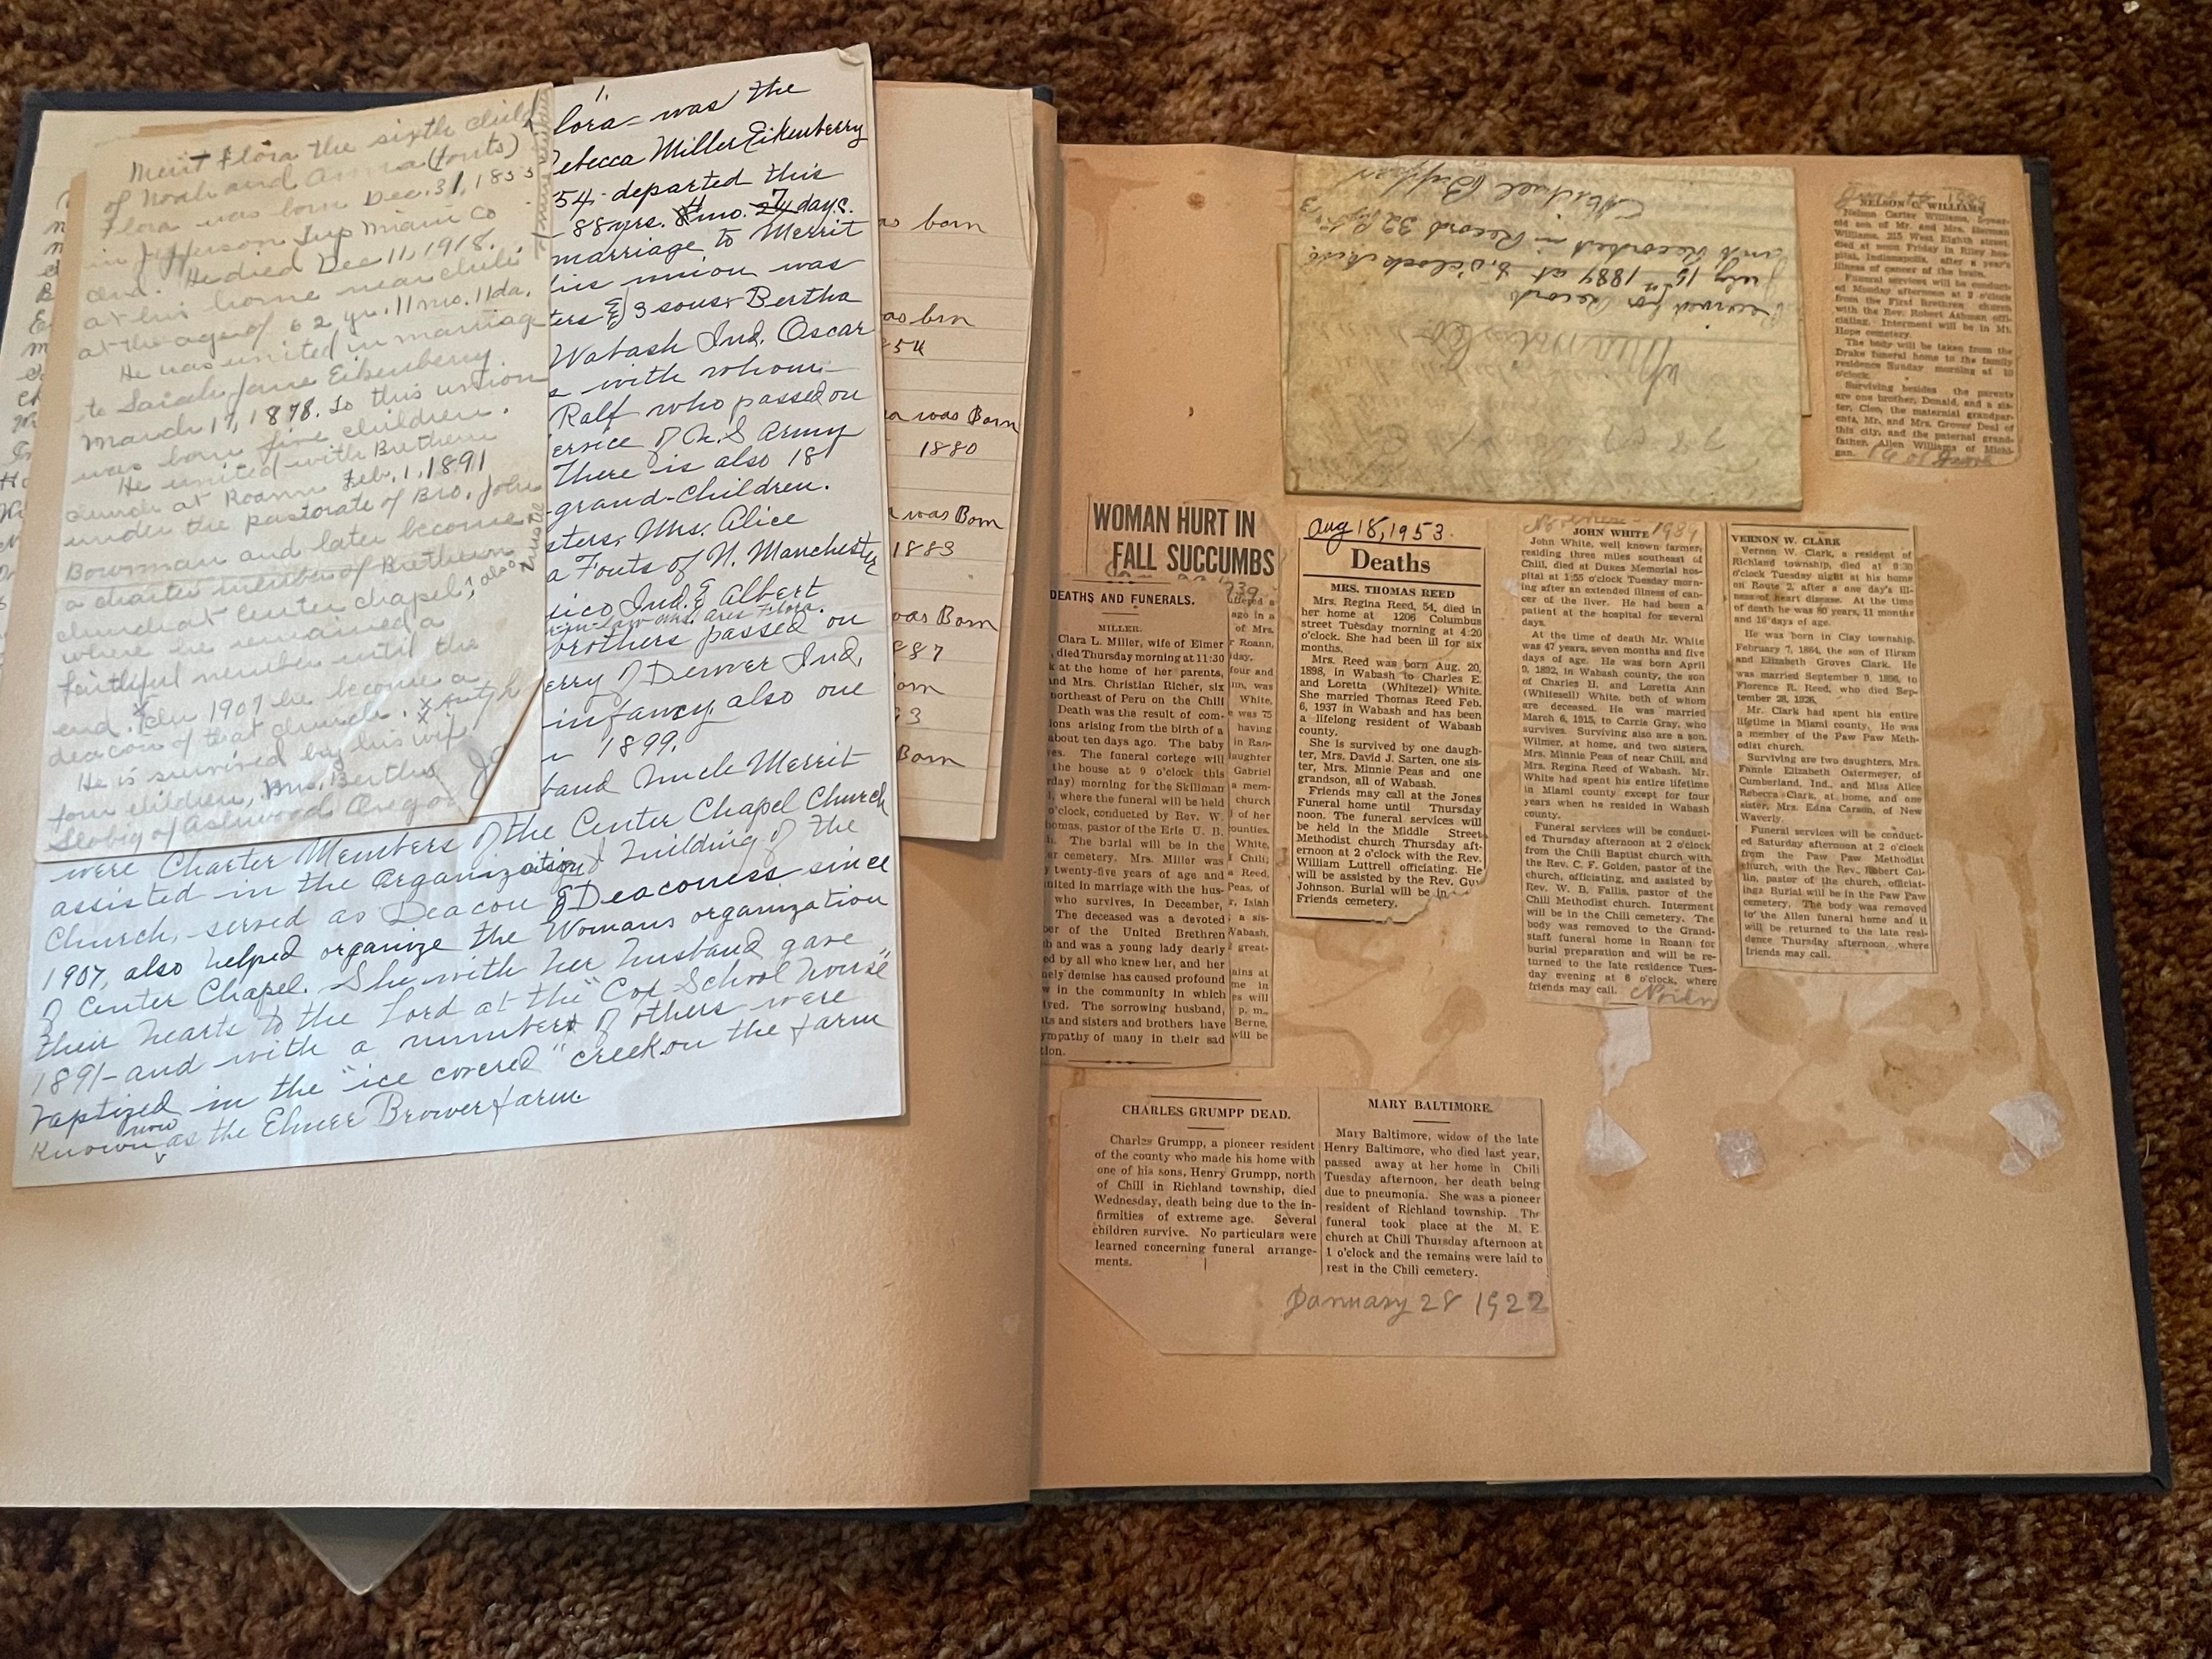 Merit Flora the sixth child
of Noah and Anna (Fouts)
Flora was born Dec. 31, 1855
in Jefferson Tup Miami Co
Ind. He died Dec 11, 1918.
at his home near Chili
at the age of 62 yr. 11 mo. 11 da.
He was united in marriage
to Sarah Jane Eikenberry
March 17, 1878. To this union
was born five children.
He united with Brethern
church at Roann Feb. 1, 1891
under the pastorate of Bro. John
Bowman and later become
a charter member of Brethern
church at Center Chapel, also
where he remained a
faithful member until the
end. In 1907 he become a
deacon of that church.
He is survived by his wife
four children, Mrs. Bertha
Slobig of Ashwood Oregon
1.
lora - was the
ebecca Miller Eikenberry
54 - departed this
88 yrs. mo. 7 days.
marriage to Merrit
his union was
ters & 3 sons, Bertha
Wabash Ind. Oscar
s with whom
Ralf who passed on
ervice of U.S Army
There is also 18
grand-children.
sters, Mrs. Alice
a Fouts of N. Manchester
xico Ind. & Albert
in-law Mrs. Ares Flora.
brothers passed on
erry of Denver Ind,
infancy, also one
1899.
band Uncle Merrit
were Charter Members of the Center Chapel Church
assisted in the Organization & building of the
Church, served as Deacon & Deaconess since
1907, also helped organize the Womans organization
of Center Chapel. She with her husband gave
their hearts to the Lord at the "Cox School House"
1891 - and with a number of others were
baptized in the "ice covered" creek on the farm
known now as the Elmer Brower farm.
as born
as brn
54
a was Born
1880
was Born
1883
was Born
887
orn
3
Born
Received for Record
July 15th 1889 at 8, o'clock
and Recorded in Record 32
NELSON C. WILLIAMS
Nelson Carter Williams, 5-year-
old son of Mr. and Mrs. Herman
Williams, 215 West Eighth street,
died at noon Friday in Riley hos-
pital, Indianapolis, after a year's
illness of cancer of the brain.
Funeral services will be conduct-
ed Monday afternoon at 2 o'clock
from the First Brethren church
with the Rev. Robert Ashman offi-
ciating. Interment will be in Mt.
Hope cemetery.
The body will be taken from the
Drake funeral home to the family
residence Sunday morning at 10
o'clock.
Surviving besides the parents
are one brother, Donald, and a sis-
ter, Cleo, the maternal grandpar-
ents, Mr. and Mrs. Grover Deal of
this city, and the paternal grand-
father, Allen Williams of Michi-
gan.
WOMAN HURT IN
FALL SUCCUMBS
DEATHS AND FUNERALS.
MILLER.
Clara L. Miller, wife of Elmer
, died Thursday morning at 11:30
k at the home of her parents,
nd Mrs. Christian Richer, six
northeast of Peru on the Chili
Death was the result of com-
ions arising from the birth of a
about ten days ago. The baby
ves. The funeral cortege will
the house at 9 o'clock this
day) morning for the Skillman
, where the funeral will be held
o'clock, conducted by Rev. W.
homas, pastor of the Erie U. B.
h. The burial will be in the
er cemetery. Mrs. Miller was
y twenty-five years of age and
nited in marriage with the hus-
who survives, in December,
The deceased was a devoted
ber of the United Brethren
h and was a young lady dearly
ed by all who knew her, and her
nely demise has caused profound
w in the community in which
ived. The sorrowing husband,
ts and sisters and brothers have
ympathy of many in their sad
tion.
ago in a
of Mrs.
r Roann,
day.
four and
nn, was
White,
e was 75
having
in Ran-
aughter
Gabriel
a mem-
church
of her
ounties.
White,
f Chili;
s Reed,
Peas, of
r, Isiah
a sis-
Wabash,
great-
ains at
me in
es will
p. m.,
Berne,
will be
Aug 18, 1953.
Deaths
MRS. THOMAS REED
Mrs. Regina Reed, 54, died in
her home at 1206 Columbus
street Tuesday morning at 4:20
o'clock. She had been ill for six
months.
Mrs. Reed was born Aug. 20,
1898, in Wabash to Charles E.
and Loretta (Whitezel) White.
She married Thomas Reed Feb.
6, 1937 in Wabash and has been
a lifelong resident of Wabash
county.
She is survived by one daugh-
ter, Mrs. David J. Sarten, one sis-
ter, Mrs. Minnie Peas and one
grandson, all of Wabash.
Friends may call at the Jones
Funeral home until Thursday
noon. The funeral services will
be held in the Middle Street
Methodist church Thursday aft-
ernoon at 2 o'clock with the Rev.
William Luttrell officiating. He
will be assisted by the Rev. Guy
Johnson. Burial will be in
Friends cemetery.
JOHN WHITE
John White, well known farmer,
residing three miles southeast of
Chili, died at Dukes Memorial hos-
pital at 1:55 o'clock Tuesday morn-
ing after an extended illness of can-
cer of the liver. He had been a
patient at the hospital for several
days.
At the time of death Mr. White
was 47 years, seven months and five
days of age. He was born April
9, 1892, in Wabash county, the son
of Charles H. and Loretta Ann
(Whitesell) White, both of whom
are deceased. He was married
March 6, 1915, to Carrie Gray, who
survives. Surviving also are a son,
Wilmer, at home, and two sisters,
Mrs. Minnie Peas of near Chili, and
Mrs. Regina Reed of Wabash. Mr.
White had spent his entire lifetime
in Miami county except for four
years when he resided in Wabash
county.
Funeral services will be conduct-
ed Thursday afternoon at 2 o'clock
from the Chili Baptist church with
the Rev. C. F. Golden, pastor of the
church, officiating, and assisted by
Rev. W. B. Fallis, pastor of the
Chili Methodist church. Interment
will be in the Chili cemetery. The
body was removed to the Grand-
staff funeral home in Roann for
burial preparation and will be re-
turned to the late residence Tues-
day evening at 6 o'clock, where
friends may call.
VERNON W. CLARK
Vernon W. Clark, a resident of
Richland township, died at 9:30
o'clock Tuesday night at his home
on Route 2, after a one day's ill-
ness of heart disease. At the time
of death he was 80 years, 11 months
and 16 days of age.
He was born in Clay township,
February 7, 1864, the son of Hiram
and Elizabeth Groves Clark. He
was married September 9, 1886, to
Florence R. Reed, who died Sep-
tember 28, 1926.
Mr. Clark had spent his entire
lifetime in Miami county. He was
a member of the Paw Paw Meth-
odist church.
Surviving are two daughters, Mrs.
Fannie Elizabeth Ostermeyer, of
Cumberland, Ind., and Miss Alice
Rebecca Clark, at home, and one
sister, Mrs. Edna Carson, of New
Waverly.
Funeral services will be conduct-
ed Saturday afternoon at 2 o'clock
from the Paw Paw Methodist
church, with the Rev. Robert Col-
lin, pastor of the church, officiat-
ing. Burial will be in the Paw Paw
cemetery. The body was removed
to the Allen funeral home and it
will be returned to the late resi-
dence Thursday afternoon, where
friends may call.
CHARLES GRUMPP DEAD.
Charles Grumpp, a pioneer resident
of the county who made his home with
one of his sons, Henry Grumpp, north
of Chili in Richland township, died
Wednesday, death being due to the in-
firmities of extreme age. Several
children survive. No particulars were
learned concerning funeral arrange-
ments.
MARY BALTIMORE.
Mary Baltimore, widow of the late
Henry Baltimore, who died last year,
passed away at her home in Chili
Tuesday afternoon, her death being
due to pneumonia. She was a pioneer
resident of Richland township. The
funeral took place at the M. E.
church at Chili Thursday afternoon at
1 o'clock and the remains were laid to
rest in the Chili cemetery.
January 28 1922